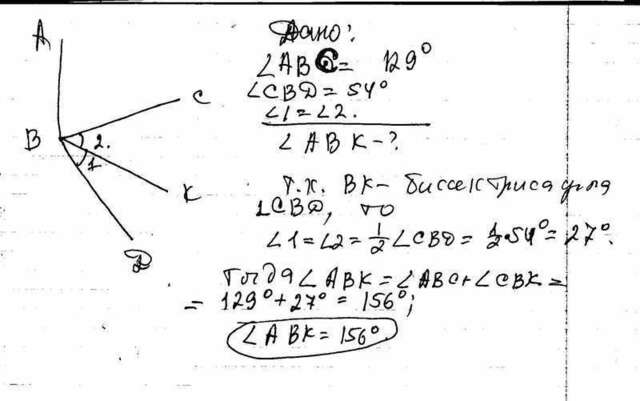 Дано:
∠ABC = 129°
∠CBD = 54°
∠1 = ∠2.
∠ABK - ?
A
C
B
2.
1
K
D
Т.к. BK - биссектриса угла
∠CBD, то
∠1 = ∠2 = 1/2 ∠CBD = 1/2·54° = 27°.
Тогда ∠ABK = ∠ABC + ∠CBK =
= 129° + 27° = 156°;
∠ABK = 156°